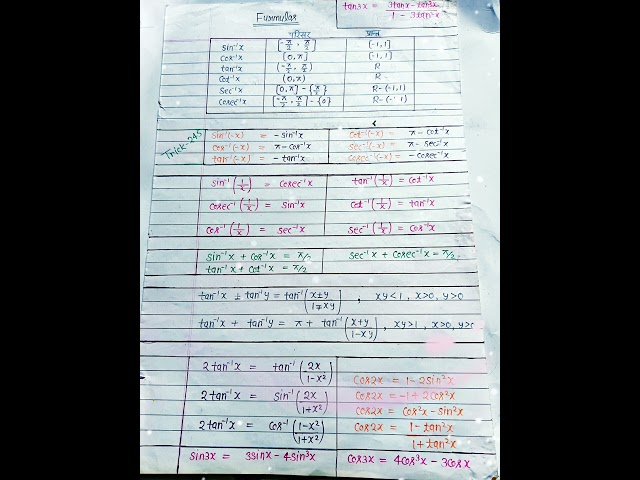 tan3x = 3tanx - tan³x / 1 - 3tan²x
Furmulas
परिसर प्रान्त
sin⁻¹x [-π/2, π/2] [-1,1]
cos⁻¹x [0,π] [-1,1]
tan⁻¹x (-π/2, π/2) R
cot⁻¹x (0,π) R
sec⁻¹x [0,π] - {π/2} R-(-1,1)
cosec⁻¹x [-π/2, π/2] - {0} R-(-1,1)
Trick-245
sin⁻¹(-x) = -sin⁻¹x cot⁻¹(-x) = π - cot⁻¹x
cos⁻¹(-x) = π - cos⁻¹x sec⁻¹(-x) = π - sec⁻¹x
tan⁻¹(-x) = -tan⁻¹x cosec⁻¹(-x) = -cosec⁻¹x
sin⁻¹(1/x) = cosec⁻¹x tan⁻¹(1/x) = cot⁻¹x
cosec⁻¹(1/x) = sin⁻¹x cot⁻¹(1/x) = tan⁻¹x
cos⁻¹(1/x) = sec⁻¹x sec⁻¹(1/x) = cos⁻¹x
sin⁻¹x + cos⁻¹x = π/2 sec⁻¹x + cosec⁻¹x = π/2
tan⁻¹x + cot⁻¹x = π/2
tan⁻¹x ± tan⁻¹y = tan⁻¹(x±y / 1∓xy) , xy<1 , x>0, y>0
tan⁻¹x + tan⁻¹y = π + tan⁻¹(x+y / 1-xy) , xy>1 , x>0, y>0
2tan⁻¹x = tan⁻¹(2x / 1-x²)
cos2x = 1 - 2sin²x
2tan⁻¹x = sin⁻¹(2x / 1+x²) cos2x = -1 + 2cos²x
cos2x = cos²x - sin²x
2tan⁻¹x = cos⁻¹(1-x² / 1+x²) cos2x = 1 - tan²x / 1 + tan²x
sin3x = 3sinx - 4sin³x cos3x = 4cos³x - 3cosx